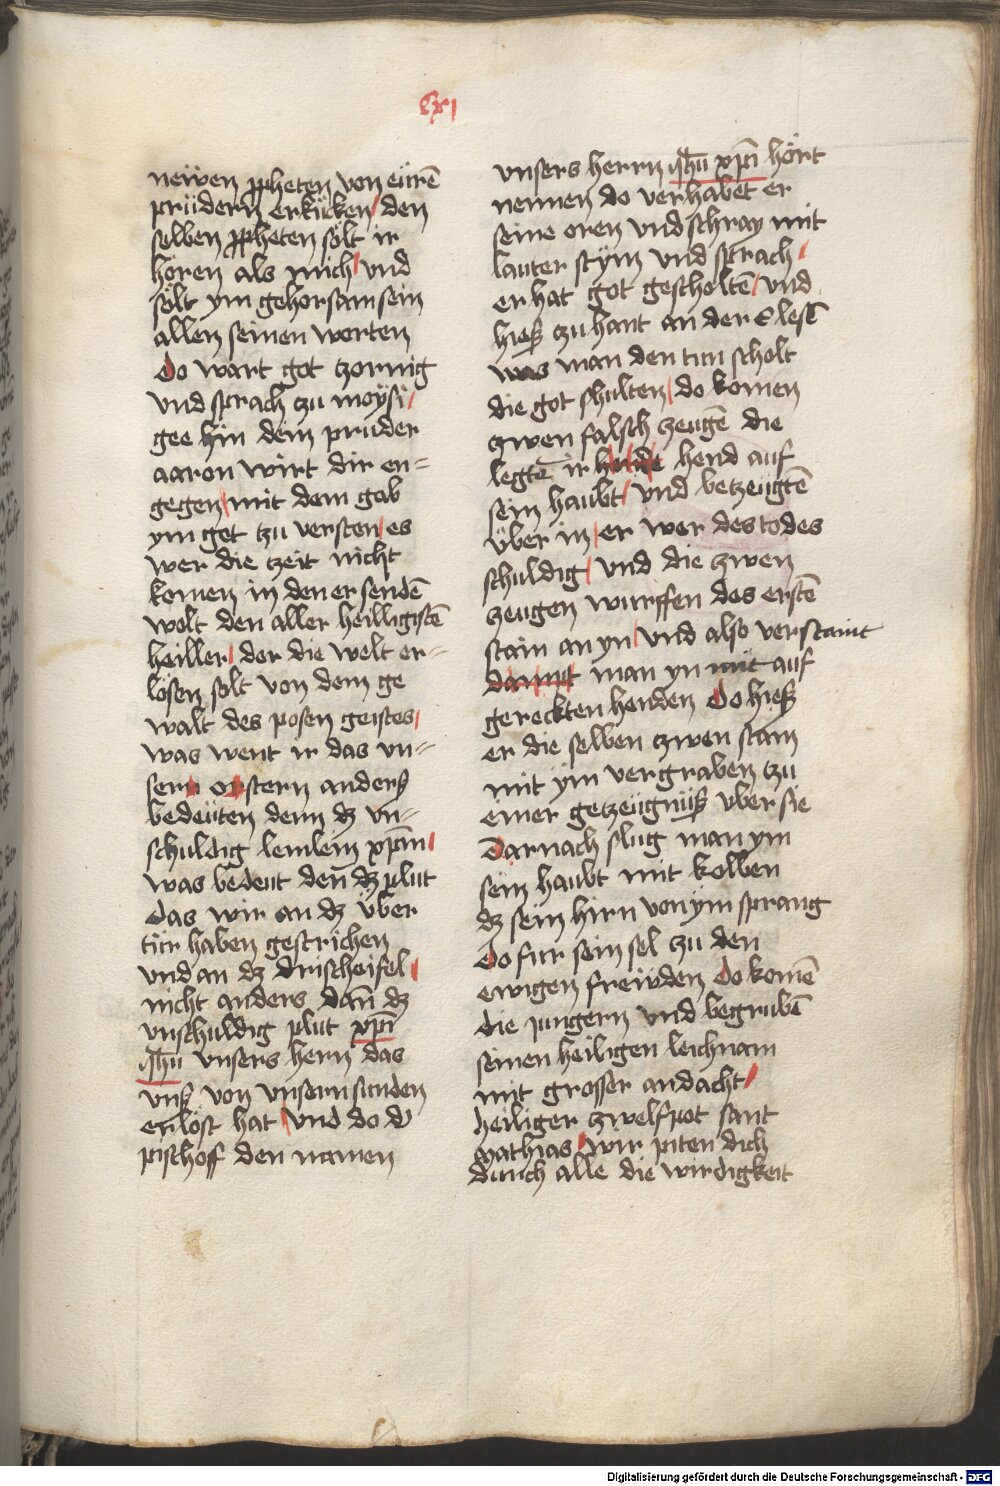 cxi
neẅen ꝓpheten von eürē
prüdern erkücken / den
selben ꝓpheten sölt ir
hören als mich / vnd
sölt ym gehorsam sein
allen seinen worten
Do wart got tzornig
vnd sprach zu moÿsi /
gee hin dein pruder
aaron wirt dir en=
gegen / mit dem gab
ym get tzu versten / es
wer die zeit nicht
komen in den er sendē
wolt den aller heilligistē
heiller / der die welt er=
lösen solt von dem ge
walt des posen geistes /
was went ir das vn=
sern ostern anderß
bedeüten denn dz vn=
schuldig lemlein xp̄m /
was bedeut den̄ dz plut
das wir an dz über
tür haben gestrichen
vnd an dz drischeüfel /
nicht anders dan̄ dz
vnschuldig plut xp̄i
ih̄u vnsers herrn das
vnß von vnsern sunden
erlöst hat / vnd do d'
pischoff den namen
vnsers herrn ih̄u xp̄i hört
nennen do verhabet er
seine oren vnd schray mit
lauter stÿm vnd sprach /
er hat got gescholtē / vnd
hieß zu hant an der e lesē
was man den tun scholt
die got schulten / do komen
zwen falsch zeugē die
legtē ir hende hend auf
sein haubt / vnd betzeügtē
über in / er wer des todes
schuldig / vnd die zwen
zeugen wurffen des erstē
stain an yn / vnd also verstaint
damit man yn mit auf
gereckten henden Do hieß
er die selben zwen stain
mit ÿm vergraben tzu
einer getzeügnüß vber sie
Darnach slug man ym
sein haubt mit kolben
dz sein hirn von ym sprang
Do fur sein sel zu den
ewigen freẅden Do komē
die jungern vnd begrubē
seinen heiligen leichnam
mit grosser andacht /
heiliger zwelfpot sant
Mathias / wir piten dich
durch alle die wirdigkeit
Digitalisierung gefördert durch die Deutsche Forschungsgemeinschaft - DFG